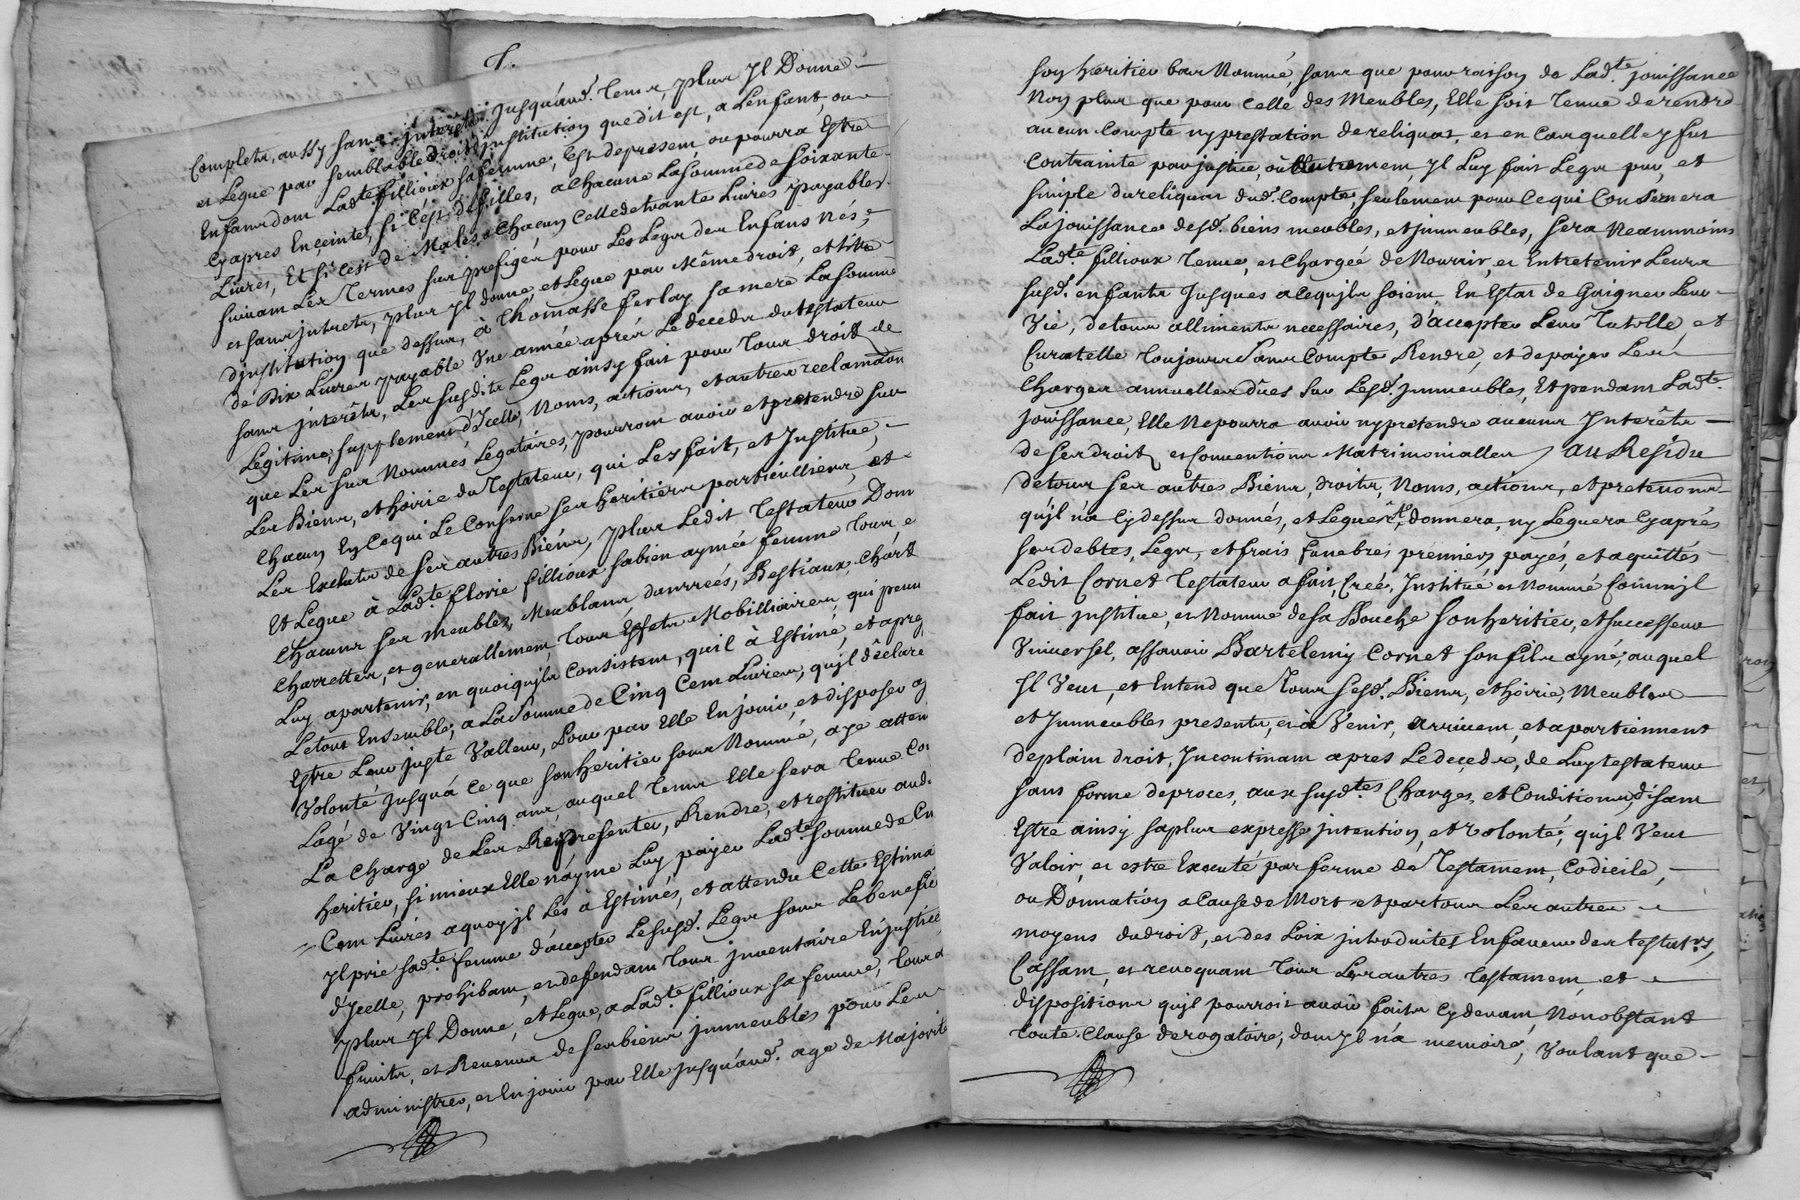 Completz, aussy sans interetz jusqu'aud. tems, plus Jl Donne
et Legue par semblable droit d'institution que dit est, a Lenfant, ou
Enfans dont Ladte fillioux sa femme, est de present, ou pourra Estre
Cyapres Enceinte, si c'est de filles, a chacune La somme de soixante
Livres, Et si c'est de Males a chacun Celle de trante Livres payables
suivant Les Termes sus prefigés pour Les Legs des Enfans Nés,
et sans jnterets, plus Jl donne, et Legue par Même droit, et titre
d'jnstitution que dessus, à Thomasse ferlay sa mere La somme
de Dix Livres payable Une année après Le deceds du testateur
sans jnterêts, Les susdits Legs ainsy fait pour tous droits de
Legitime, supplement d'jcelle, Noms, actions, et autres reclamaōn
que Les sus Nommés Legataires, pourront avoir et pretendre sur
Les Biens, et hoirie du Testateur, qui Les fait, et Justitue,
Chacun En ce qui Le Conserne ses heritiers particulliers, et
Les Exclutz de ses autres Biens, plus Ledit Testateur Donn
Et Legue à Ladte florie fillioux sa bien aymée femme tous, e
chacuns ses meubles, Meublans danrreés, Bestiaux, Chars
Charrettes, et generallement tous Effets Mobilliaires, qui peuv
Luy apartenir, en quoi qu'jls Consistent, qu'il à Estimé, et apre
Letout Ensemble, a La somme de Cinq Cent Livres, qu'jl déclare
Estre Leur juste Valleur, pour par Elle En jouir, et disposer a
Volonté, jusqu'a ce que son heritier sous Nommé, aye attein
Lagé de Vingt Cinq ans, auquel tems Elle sera tenue Co
La charge de Les Representer, Rendre, et restituer aud.
heritier, si mieux Elle n'ayme Luy payer Ladte somme de Cin
Cent Livres a quoy jl Les à Estimés, et attendu Cette Estima
Jl prie sadte femme d'accepter Le susd. Legs sous Le benefic
d'Jcelle, prohibant, et defendant tout jnventaire En justice
plus Jl Donne, et Legue, a Ladte fillioux sa femme, tous
fruits, et Revenus de ses biens jmmeubles pour Les
administrer, et En jouir par Elle jusqu'aud. age de Majorité
son heritier bas Nommé, sans que pour raison de Ladte jouissance
Non plus que pour Celle des Meubles, Elle soit tenue de rendre
aucun Compte ny prestation de reliquat, et en Cas quelle y fut
Contrainte par justice, ou Autrement Jl Luy fait Legs pur, et
simple du reliquat dud. Compte, seulement pour Ce qui Consernera
La jouissance desd. biens meubles, et jmmeubles, sera Neanmoins
Ladte fillioux tenue, et Chargeé de Nourrir, et Entretenir Leurs
susd. enfants Jusques a ce qu'jls soient En Estat de Gaigner Leur
Vie, de tous alliments necessaires, d'accepter Leur Tutelle, et
Curatelle toujours sans Compte Rendre, et de payer Les
Charges annuelles dûes sur Lesd. Jmmeubles, Et pendant Ladte
jouissance, Elle Ne pourra avoir ny pretendre aucuns Jnterêts
de ses droits et Conventions Matrimonialles / au Residu
de tous ses autres Biens, droits, Noms, actions, et pretentions
qu'jl n'a Cy dessus donnés, et Legués, donnera, ny Leguera Cyaprés
ses debtes, Legs, et frais funebres premiers payés, et aquittés
Ledit Cornet Testateur a fait, Créé, Justitué et Nommé Comm'jl
fait justitue, et Nomme de sa Bouche son heritier, et successeur
Vniversel, assavoir Bartelemy Cornet son fils ayné, auquel
Jl Veut, et Entend que tous sesd. Biens, et hoirie, Meubles
et Jmmeubles presents, et à Venir, arrivent, et apartiennent
de plain droit, Jncontinant apres Le decedz, de Luy testateur
sans forme de proces, aux susdtes Charges, et Conditions, disant
Estre ainsy sa plus expresse jntention, et volonté, qu'jl Veut
Valoir, et estre Executé par forme de Testament, Codicile,
ou Donnation a Cause de Mort et par tous Les autres
moyens du droit, et des Loix jntroduites En faveur des testatrs,
Cassant, et revoquant tous Les autres testament, et
dispositions qu'jl pourroit avoir faits Cy devant, Nonobstant
toute Clause derogatoire, dont Jl n'a memoire, Voulant que